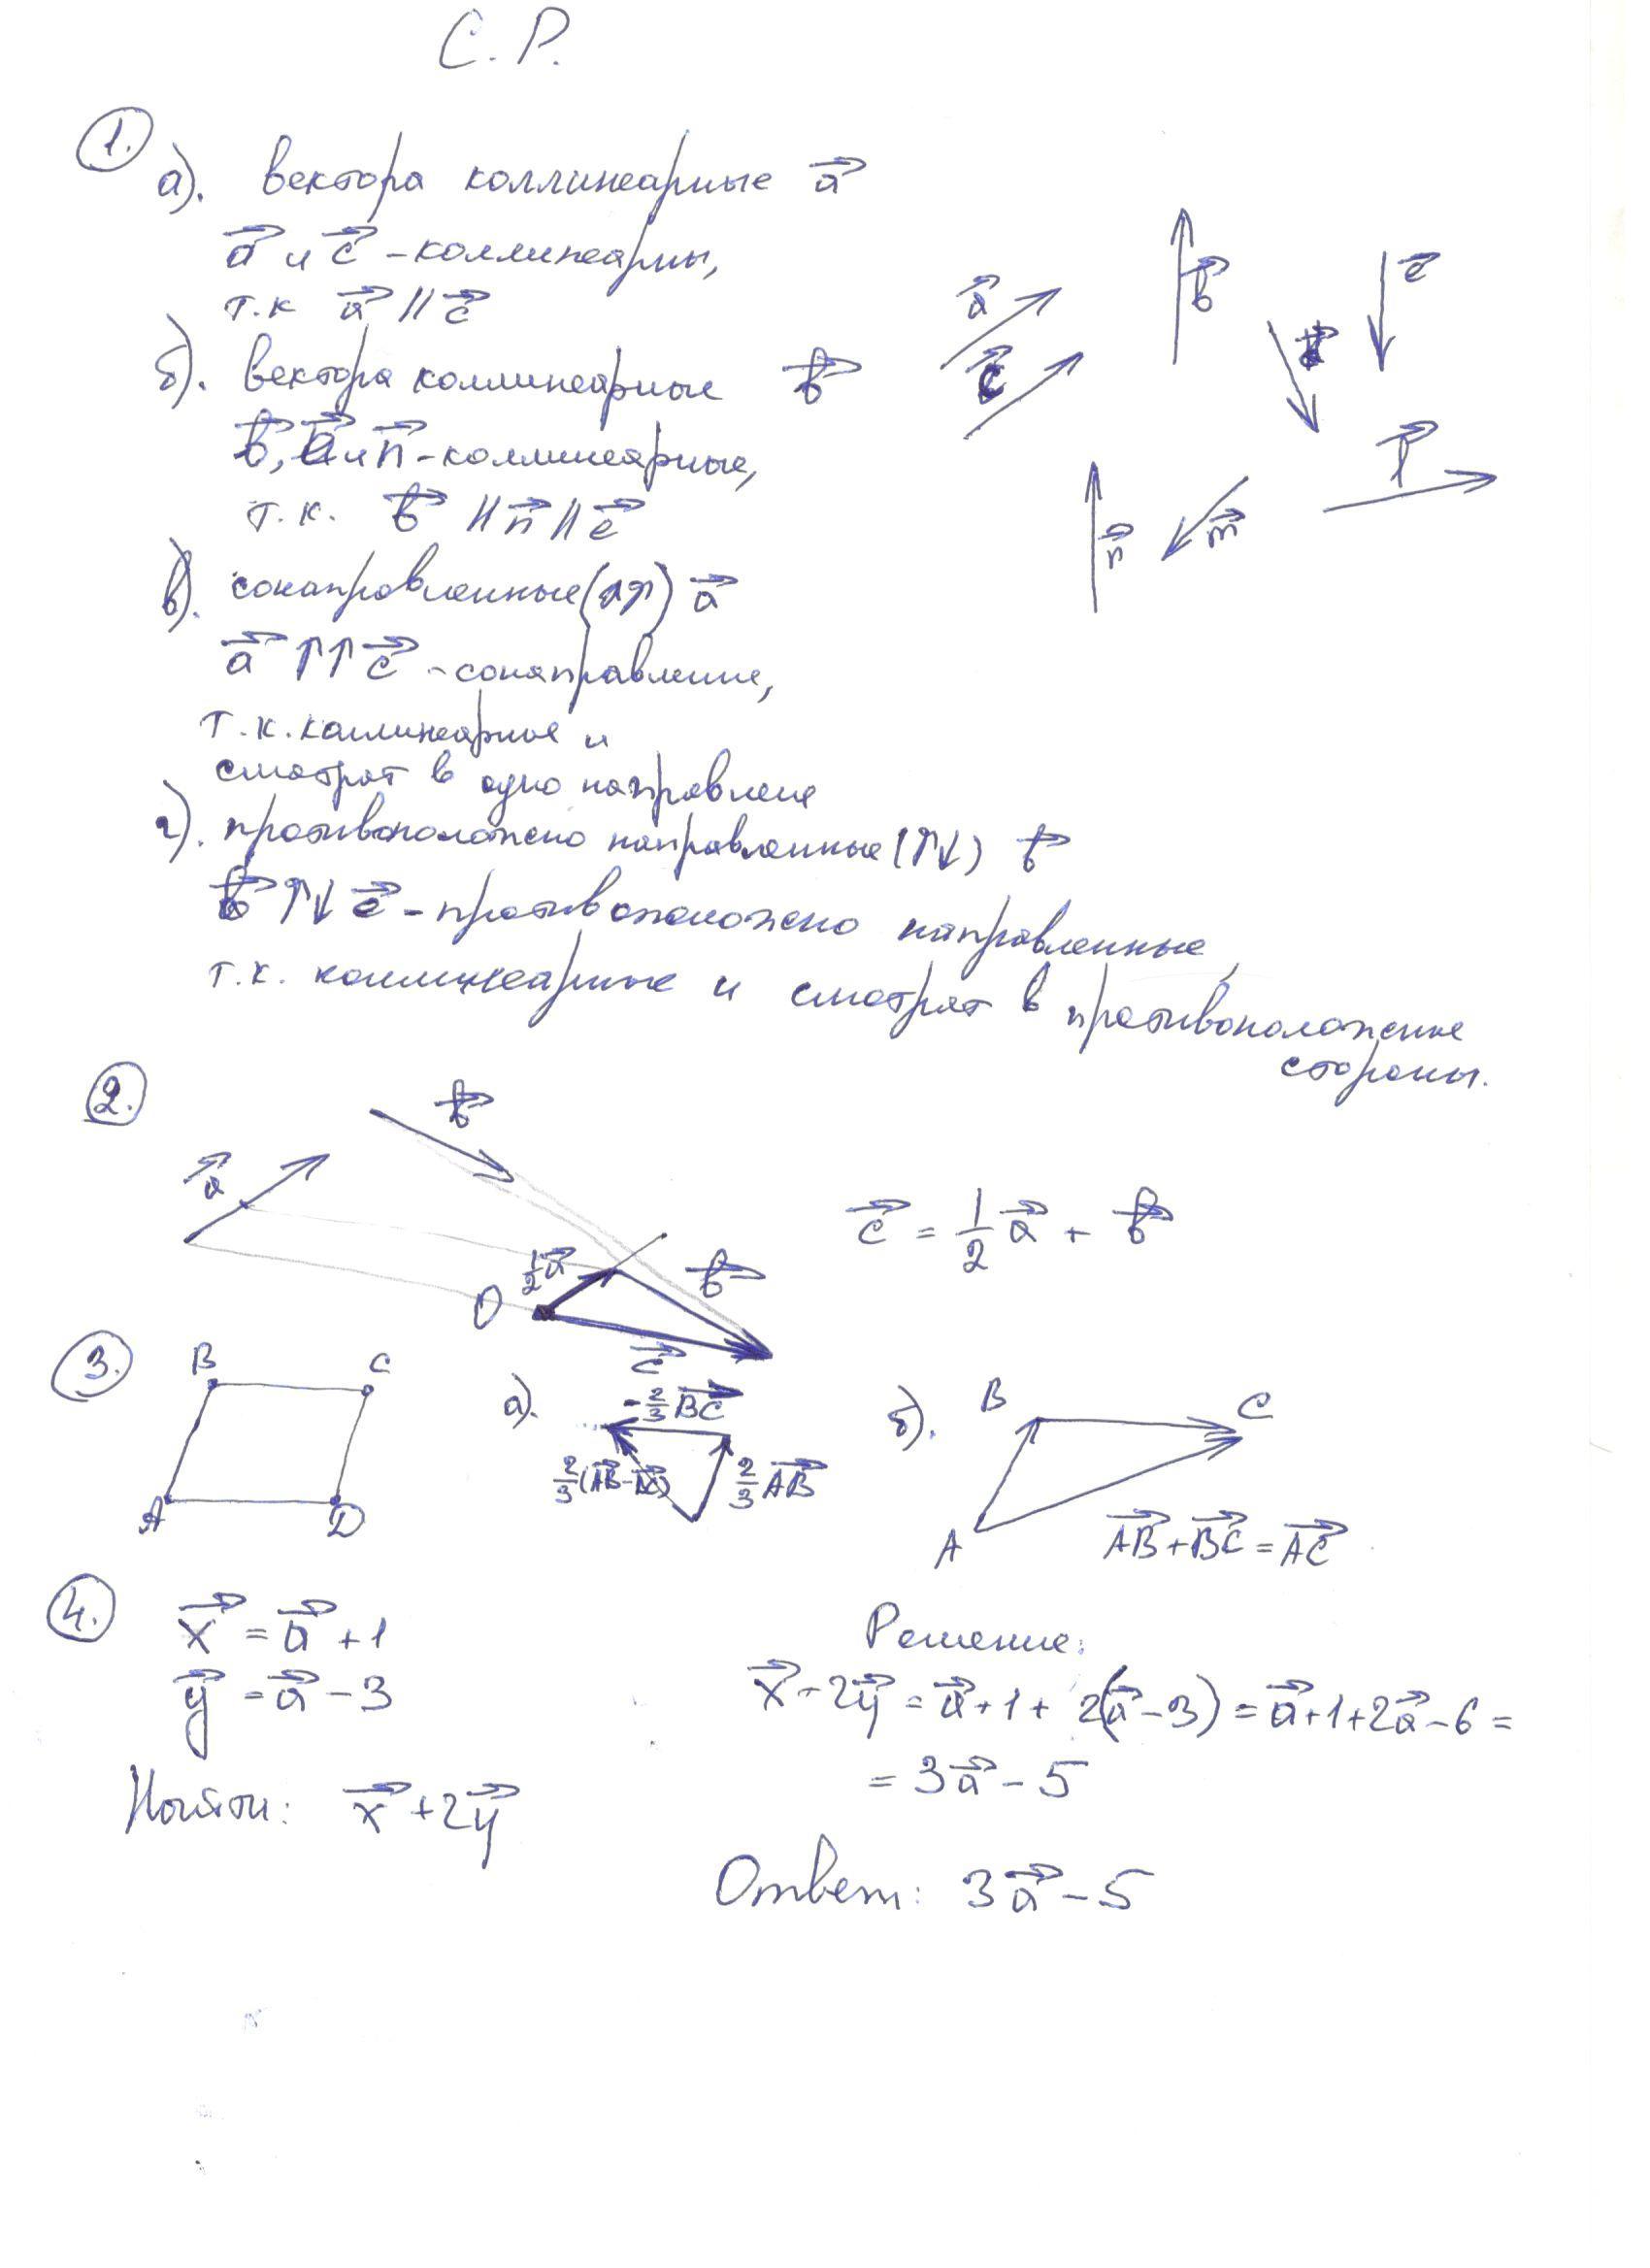 С.Р.
1.
а). вектора коллинеарные a⃗
a⃗ и c⃗ - коллинеарны,
т.к a⃗ || c⃗
a⃗
c⃗
b⃗
e⃗
l⃗
n⃗
m⃗
б). вектора коллинеарные b⃗
b⃗, e⃗ и n⃗ - коллинеарные,
т.к. b⃗ || n⃗ || e⃗
в). сонаправленные (↑↑) a⃗
a⃗ ↑↑ c⃗ - сонаправление,
т.к. коллинеарные и
смотрят в одно направлене
г). противоположено направленные (↑↓) b⃗
b⃗ ↑↓ e⃗ - противоположено направленные,
т.к. коллинеарные и смотрят в противоположение
стороны.
2.
a⃗
b⃗
½a⃗
b⃗
O
c⃗
c⃗ = ½a⃗ + b⃗
3.
B C
A D
а).
-⅔BC⃗
⅔(AB⃗-BC⃗)
⅔AB⃗
б).
B C
A
AB⃗+BC⃗=AC⃗
4.
x⃗ = a⃗ + 1
y⃗ = a⃗ - 3
Найти: x⃗ + 2y⃗
Решение:
x⃗ + 2y⃗ = a⃗ + 1 + 2(a⃗ - 3) = a⃗ + 1 + 2a⃗ - 6 =
= 3a⃗ - 5
Ответ: 3a⃗ - 5